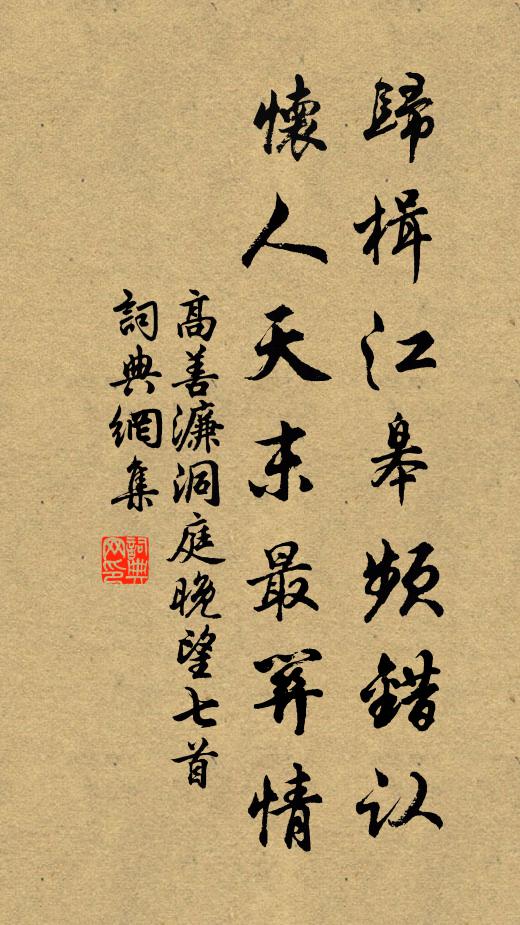 歸楫江皋頻錯认
懷人天末最關情
高善濂洞庭晚望七首
詞典網集
詞典网印